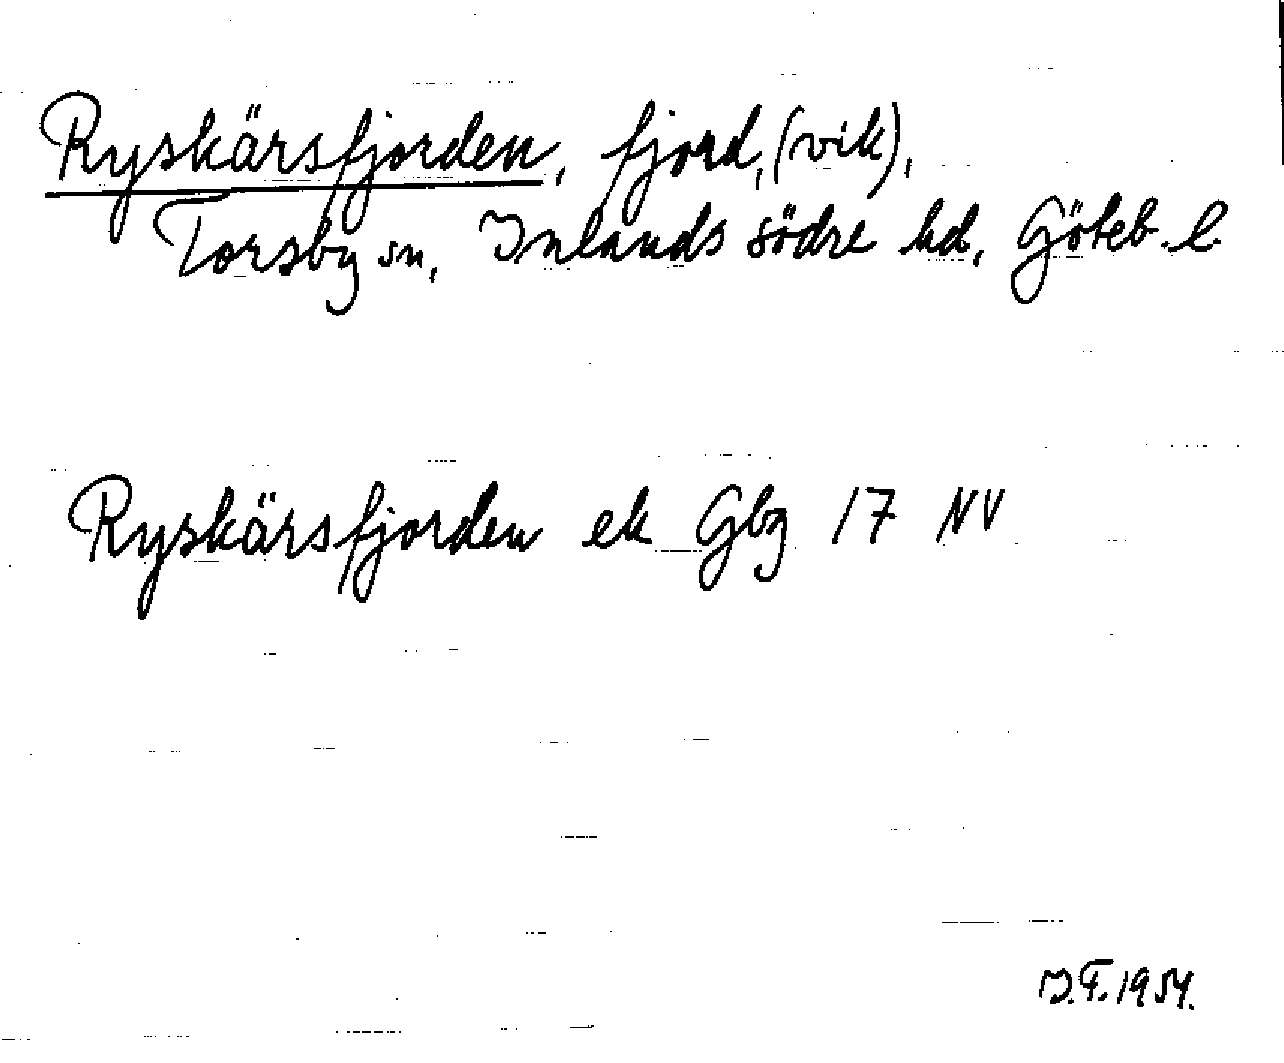 Ryskärsfjorden, fjord, (vik),
Torsby sn, Inlands södre hd, Göteb. l.
Ryskärsfjorden ek Gbg 17 NV
I.F. 1954.